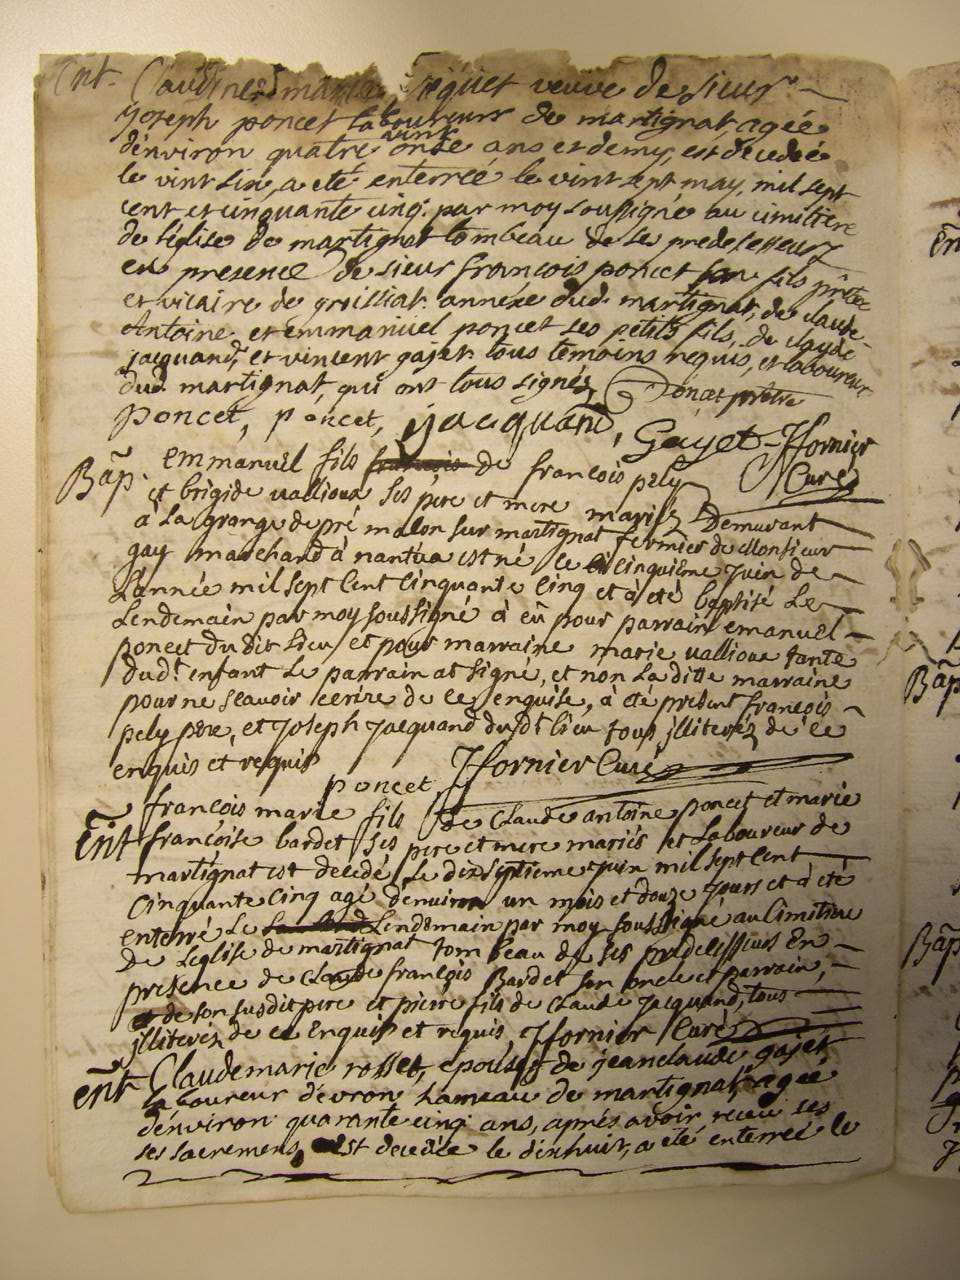 Ent. Claudine marie seguet veuve de sieur
joseph poncet laboureur de martignat, agée
d'environ quatre vint onse ans et demy, est décedée
le vint six, a eté enterrée le vint sept may, mil sept
cent et cinquante cinq. par moy soussigné au cimitiere
de l'église de martignat tombeau de ses predecesseurs
en presence de sieur françois poncet son fils prêtre
et vicaire de groissiat. annéxe dud. martignat, de claude
Antoine et emmanuel poncet ses petits fils, de claude
jacquand, et vincent gajet. tous temoins requis, et laboureurs
dud. martignat, qui ont tous signés Poncet prêtre
poncet, poncet, jacquand, Gayet Jfornier
Curé
Bap. emmanuel fils de françois pely
et brigide vallioux ses pere et mere mariés Demurant
à la grange de pré malon sur martignat fermier de Monsieur
gay marchand à nantua est né le cinquième juin de
L'année mil sept cent cinquante cinq et à été baptisé le
Lendemain par moy soussigné à eû pour parrain emanuel
poncet du dit lieu et pour marraine marie vallioux tante
dudt. enfant le parrain at signé, et non laditte marraine
pour ne sçavoir ecrire de ce enquise, à été présent françois
pely père, et joseph jacquand dudt lieu tous jlliterés de ce
enquis et requis
poncet, Jfornier Curé
Ent françois marie fils de Claude antoine poncet et marie
françoise bardet ses pere et mere mariés et laboureur de
martignat est decedé le dixseptieme juin mil sept cent
cinquante cinq agé d'environ un mois et douze jours et à été
enterré le Lendemain par moy soussigné au cimitiere
De L'eglise de martignat tombeau de ses predecesseurs En
presence de claude françois Bardet son oncle et parrain,
de son susdit pere et pierre fils de claude jacquand, tous
jlliterés de ce Enquis et requis, Jfornier Curé
Ent Claudemarie rosset, epouse de jeanclaude gajet,
laboureur d'évron hameau de martignat, agée
d'environ quarante cinq ans, aprés avoir receu ses
ses sacremens, est decedée le dixhuit, a eté enterrée le